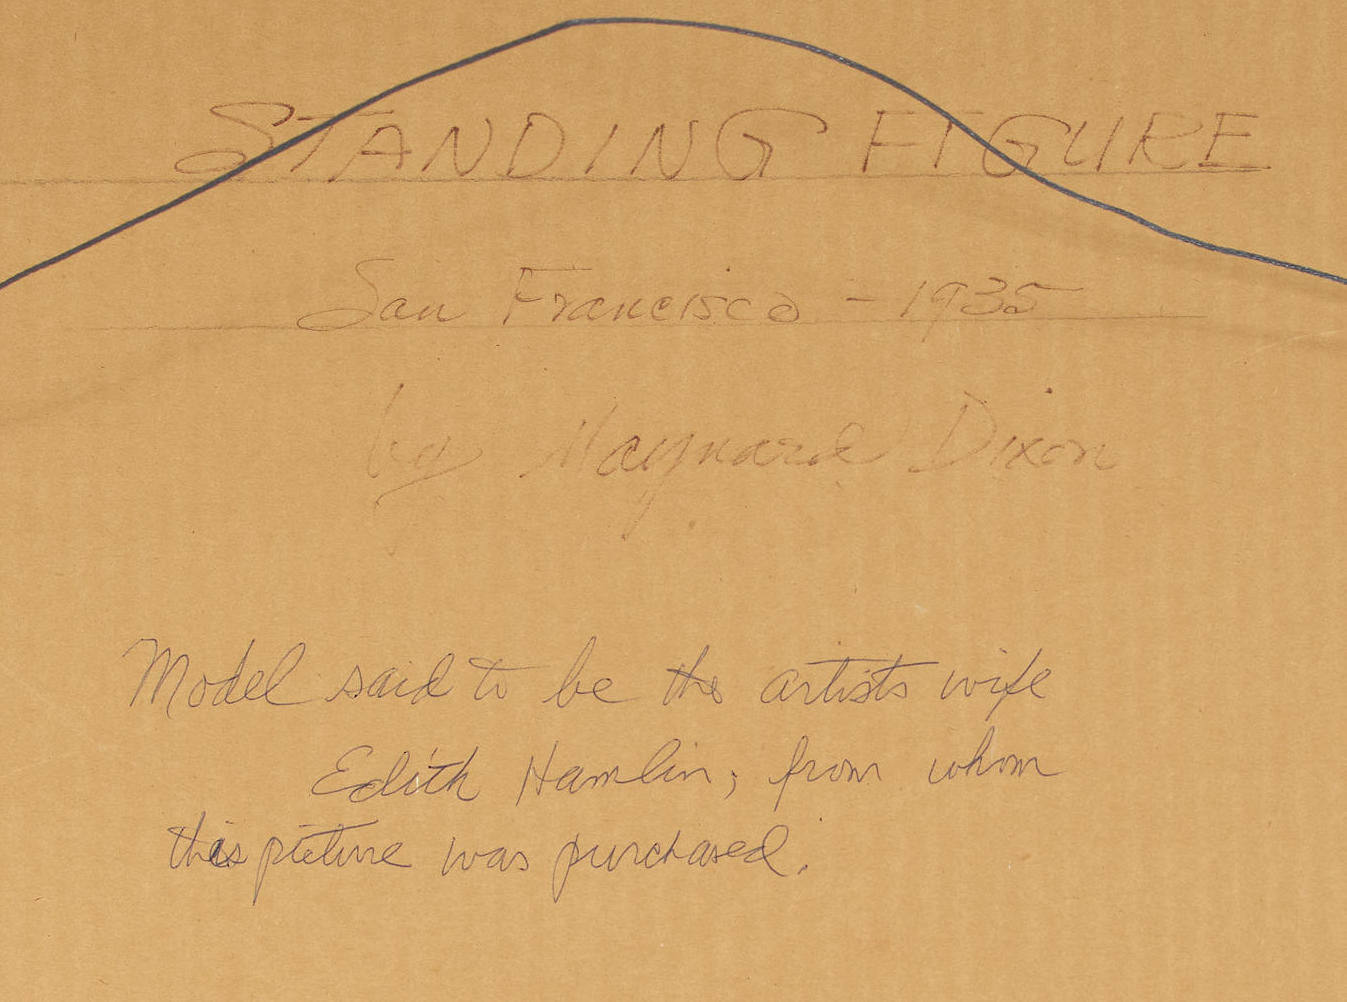 STANDING FIGURE
San Francisco - 1935
by Maynard Dixon
Model said to be the artists wife
Edith Hamlin, from whom
this picture was purchased.